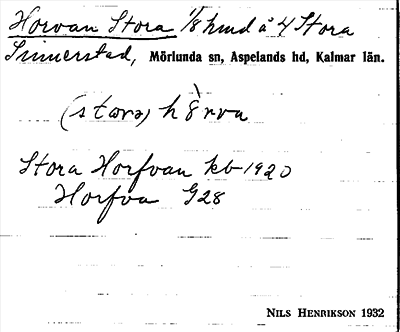 Horvan Stora 1/8 hmd å 4 Stora
Sinnerstad, Mörlunda sn, Aspelands hd, Kalmar län.
(stæra) h
Stora Horfvan kb 1920
Horfva G28
NILS HENRIKSON 1932